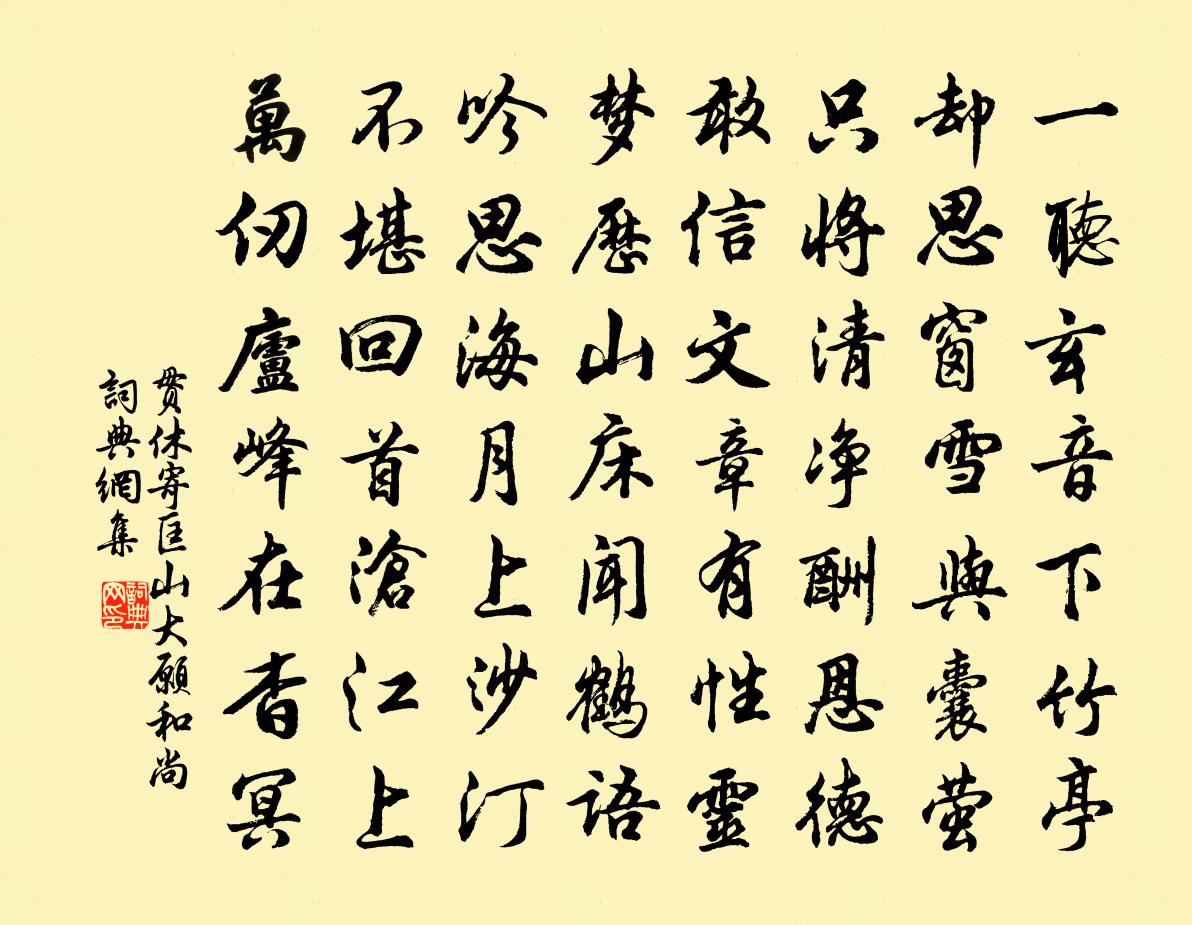 一聽玄音下竹亭
却思窗雪與囊萤
只將清净酬恩德
敢信文章有性靈
梦歷山床聞鶴語
吟思海月上沙汀
不堪回首滄江上
萬仞廬峰在杳冥
贯休寄匡山大願和尚
詞典網集
詞典网印